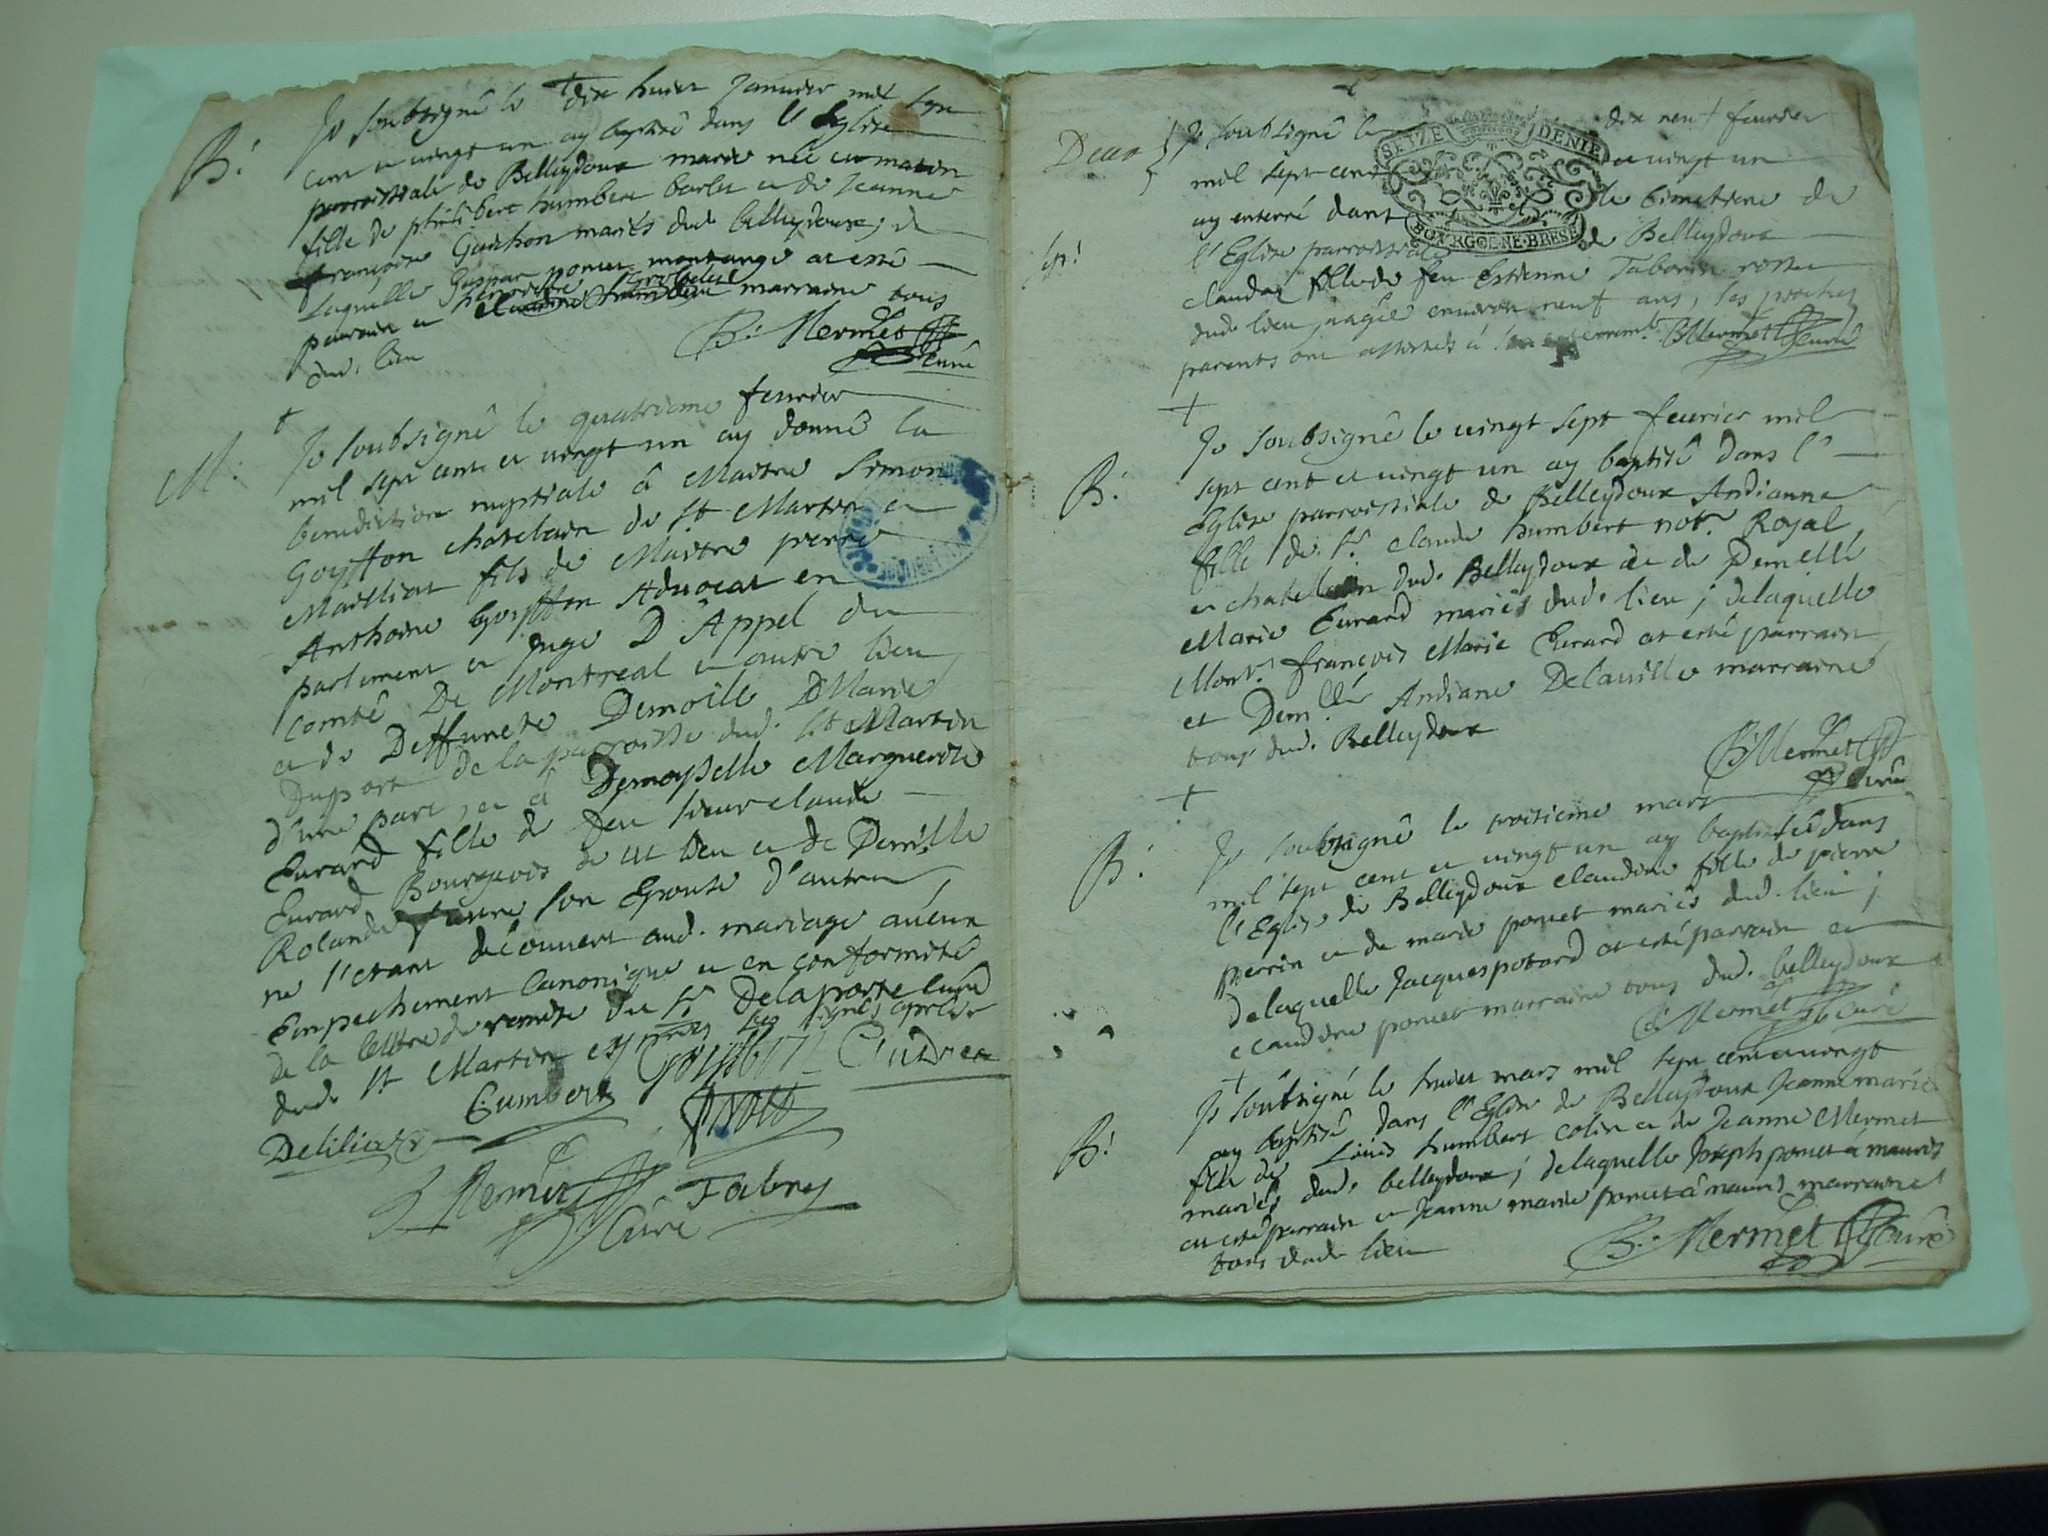 B.
Je soubsigné le dix huict Januier mil sept
cent et vingt un ay baptisé dans l'Eglise
parroissiale de Belleydoux marie née en
fille de philibert humbert barlet et de Jeanne
françoise Guichon mariés dud. belleydoux; de
laquelle Gaspar poncet montange at esté
parrain et marraine tous
dud. lieu
B: Mermet Curé
M.
Je soubsigné le quatrieme feurier
mil sept cent et vingt un ay donné la
benediction nuptiale à Maitre Simon
Goyffon chatelain de St Martin et
Mailliat fils de Maitre pierre
Anthoine Goyffon Aduocat en
parlement et Juge D'Appel du
Comté De Montreal et autre lieu
et de Deffuncte Demoille DMarie
Duport de la parroisse dud. St Martin
d'une part, et à Demoyselle Marguerite
Eurard fille de feu sieur claude
Eurard Bourgeois de ce lieu et de Demille
Rolande son Epouse d'autre,
ne s'etant découuert aud. mariage aucun
Empechement Canonique et en conformité
de la lettre de remise du Sr Delaporte Curé
dud. St Martin les signés apres
Humbert Goyffon
Delilia
Mermet Curé Fabry
Deux
Je soubsigné le dix neuf feurier
mil sept cent et vingt un
ay enterré dans le cimetiere de
l'Eglise parroissiale de Belleydoux
SEIZE DENIE
BOURGOGNE·BRESSE
Sp!
claudaz fille de feu Estienne Taborin rosset
dud. lieu, agée enuiron neuf ans, les proches
parents ont assistés à l'enterrement. B Mermet Curé
B.
Je soubsigné le vingt sept feurier mil
sept cent et vingt un ay baptisé dans l'
Eglise parroissiale de Belleydoux Andianne
fille de Sr claude humbert notr Royal
et chatellain dud. Belleydoux et de Demelle
Marie Eurard mariés dud. lieu; delaquelle
Monr. françois Marie Eurard at esté parrain
et Demlle Andiane Delauille marraine
tous dud. Belleydoux
B: Mermet Curé
B.
Je soubsigné le troisieme mars
mil sept cent et vingt un ay baptisé dans
l'Eglise de Belleydoux claudine fille de pierre
perrin et de marie poncet mariés dud. lieu;
delaquelle Jacques potard at esté parrain et
claudine poncet marraine tous dud. belleydoux
B: Mermet Curé
B.
Je soubsigné le huict mars mil sept cent et vingt
ay baptisé dans l'Eglise de Belleydoux Jeanne marie
fille de Louis humbert colin et de Jeanne Mermet
mariés dud. belleydoux; delaquelle Joseph poncet à mauris
at esté parrain et Jeanne marie poncet à mauris marraine
tous dud. lieu
B: Mermet Curé